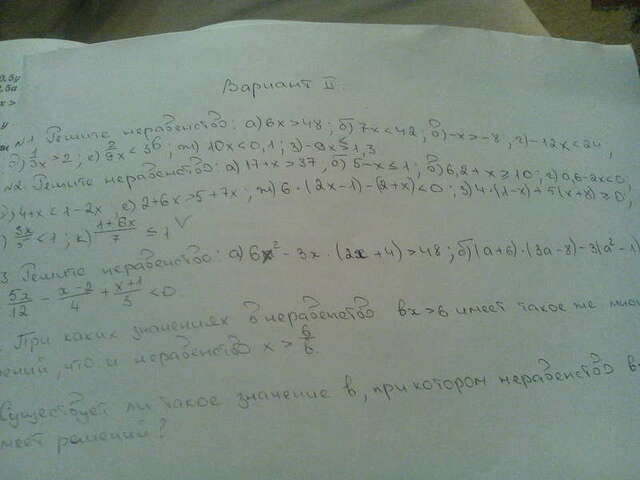 Вариант II.
N1. Решите неравенство: а) 6x>48; б) 7x<42; в) -x>-8; г) -12x<24;
д) 1/3x>2; е) 2/9x<36; ж) 10x<0,1; з) -9x≥1,3
N2. Решите неравенство: а) 17+x>37, б) 5-x≤1; в) 6,2+x≥10; г) 0,6-2x<0;
4+x<1-2x, е) 2+6x>5+7x, ж) 6·(2x-1)-(2+x)<0; з) 4·(1-x)+5(x+8)≥0;
3x/5<1; к) (1+6x)/7≤1
3 Решите неравенство: а) 6x²-3x·(2x+4)>48; б) (a+6)·(3a-8)-3(a²-1)
5x/12 - (x-2)/4 + (x+1)/3 <0.
При каких значениях b неравенство bx>6 имеет такое же мно
ений, что и неравенство x>6/b.
Существует ли такое значение b, при котором неравенство b
меет решений?
0,5y
2,5a
x>
y